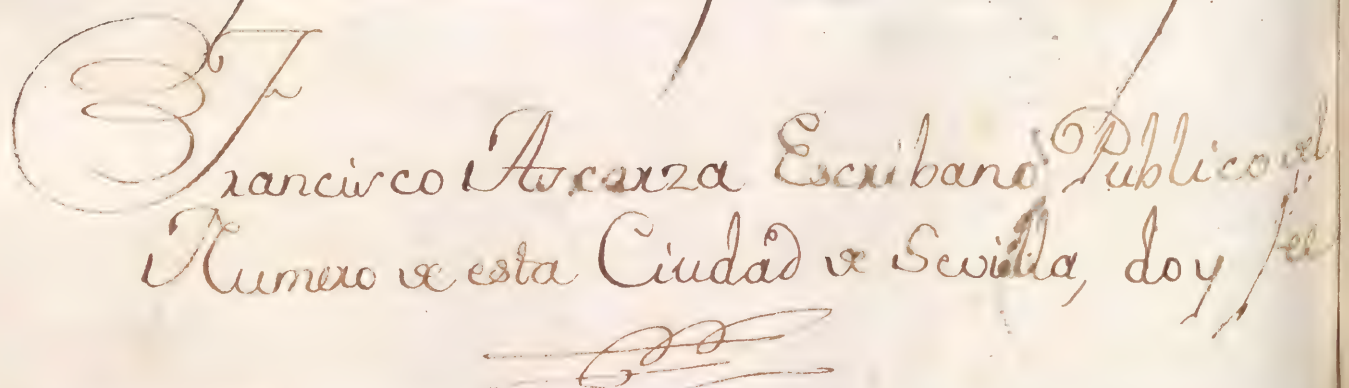 Francisco Ascarza Escribano Publico del
Numero de esta Ciudad de Sevilla, doy fee